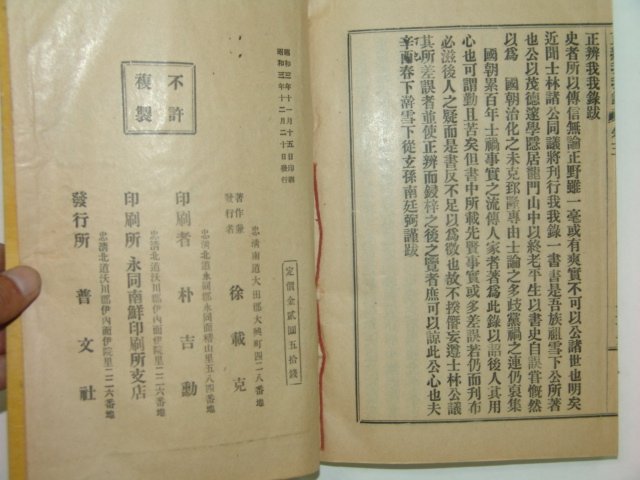 正辨我我錄跋
史者所以傳信無論正野雖一毫或有爽實不可以公諸世也明矣
近聞士林諸公同議將刊行我我錄一書書是吾族祖雪下公所著
也公以茂德邃學隱居龍門山中以終老平生以書史自誤嘗慨然
以爲 國朝治化之未克郅隆專由士論之多歧黨禍之連仍裒集
國朝累百年士禍事實之流傳人家者著爲此錄以詔後人其用
心也可謂勤且苦矣但書中所載先賢事實或多差誤若仍而刊布
必滋後人之疑而是書反不足以爲徵也故不揆僭妄遵士林公議
其所差誤者並使正辨而鋟梓之後之覽者庶可以諒此公心也夫
辛酉春下澣雪下從玄孫南廷弼謹跋
昭和三年十一月十五日印刷
昭和三年十二月二十日發行
不許
複製
定價金貳圓五拾錢
忠淸南道大田郡大興町四二八番地
著作兼
發行者 徐載克
忠淸北道永同郡永同面稽山里五八四番地
印刷者 朴吉勳
忠淸北道沃川郡伊內面伊院里二二六番地
印刷所 永同南鮮印刷所支店
忠淸北道沃川郡伊內面伊院里二二六番地
發行所 普文社